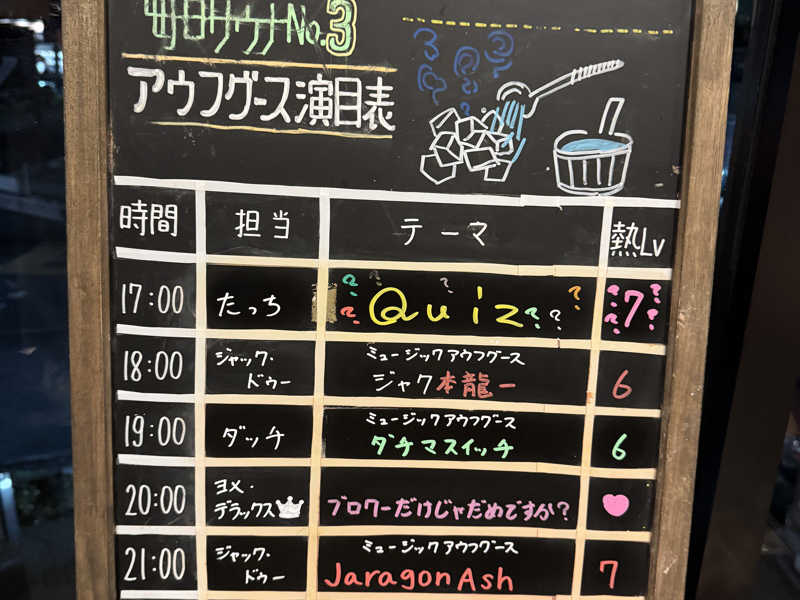 町田サウナNo.3
アウフグース演目表
時間 担当 テーマ 熱Lv
17:00 たっち ??? Quiz ??? ??7??
18:00 ジャック・ドゥー ミュージックアウフグース
ジャク本龍一 6
19:00 ダッチ ミュージックアウフグース
ダチマスイッチ 6
20:00 ヨメ・デラックス ブロワーだけじゃだめですか?
21:00 ジャック・ドゥー ミュージックアウフグース
Jaragon Ash 7